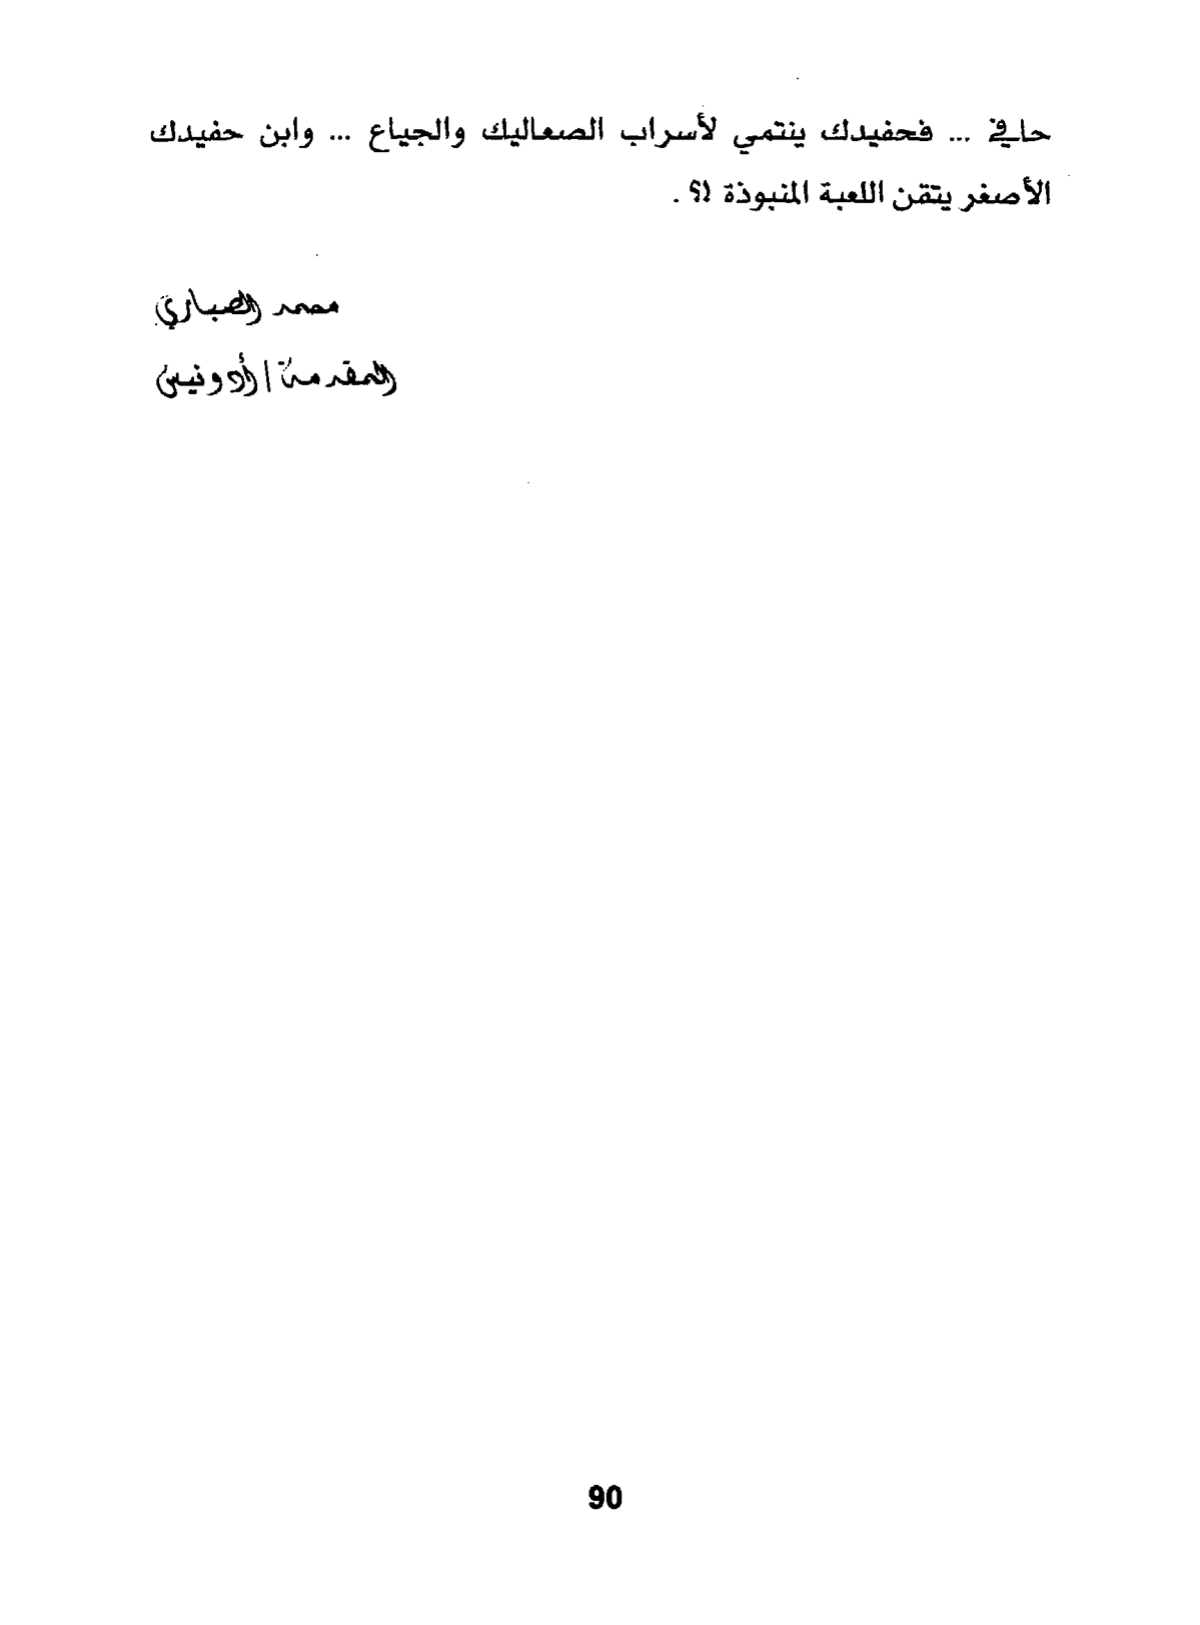 حافي ... فحفيدك ينتمي لأسراب الصعاليك والجياع ... وابن حفيدك
الأصغر يتقن اللعبة المنبوذة !؟ .
محمد الصباري
المقدمة / أدونيس
90